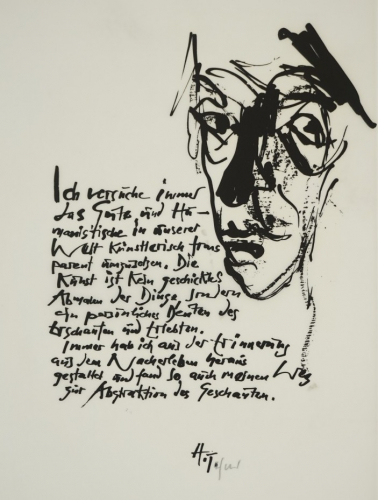 Ich versuche immer
das Gute und Hu-
manistische in unserer
Welt künstlerisch trans
parent umzusetzen. Die
Kunst ist kein geschicktes
Abmalen der Dinge, sondern
ein persönliches Deuten des
Erschauten und Erlebten.
Immer hab ich aus der Erinnerung
aus dem Nacherleben heraus
gestaltet und fand so auch meinen Weg
zur Abstraktion des Geschauten.